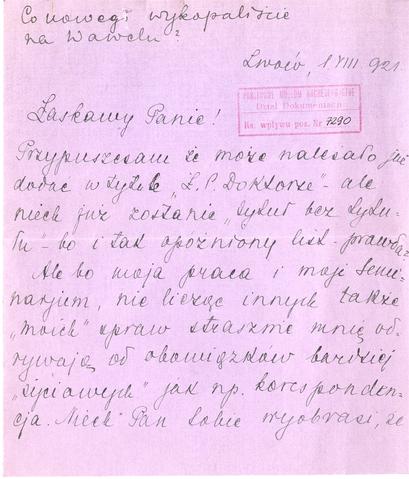 Co nowego wykopaliście
na Wawelu?
Lwów, 1 VIII 921.
PAŃSTWOWE MUZEUM ARCHEOLOGICZNE
Dział Dokumentacji
Ks. wpływu poz. Nr 7290
Łaskawy Panie!
Przypuszczam że może należało już
dodać w tytule "Ł. P. Doktorze" - ale
niech już zostanie "tytuł bez tytu-
łu" - bo i tak opóźniony list - prawda?
Ale bo moja praca i moje Semi-
narjum, nie licząc innych także
"moich" spraw strasznie mnie od-
rywają od obowiązków bardziej
"życiowych" jak np. koresponden-
cja. Niech Pan sobie wyobrazi, że